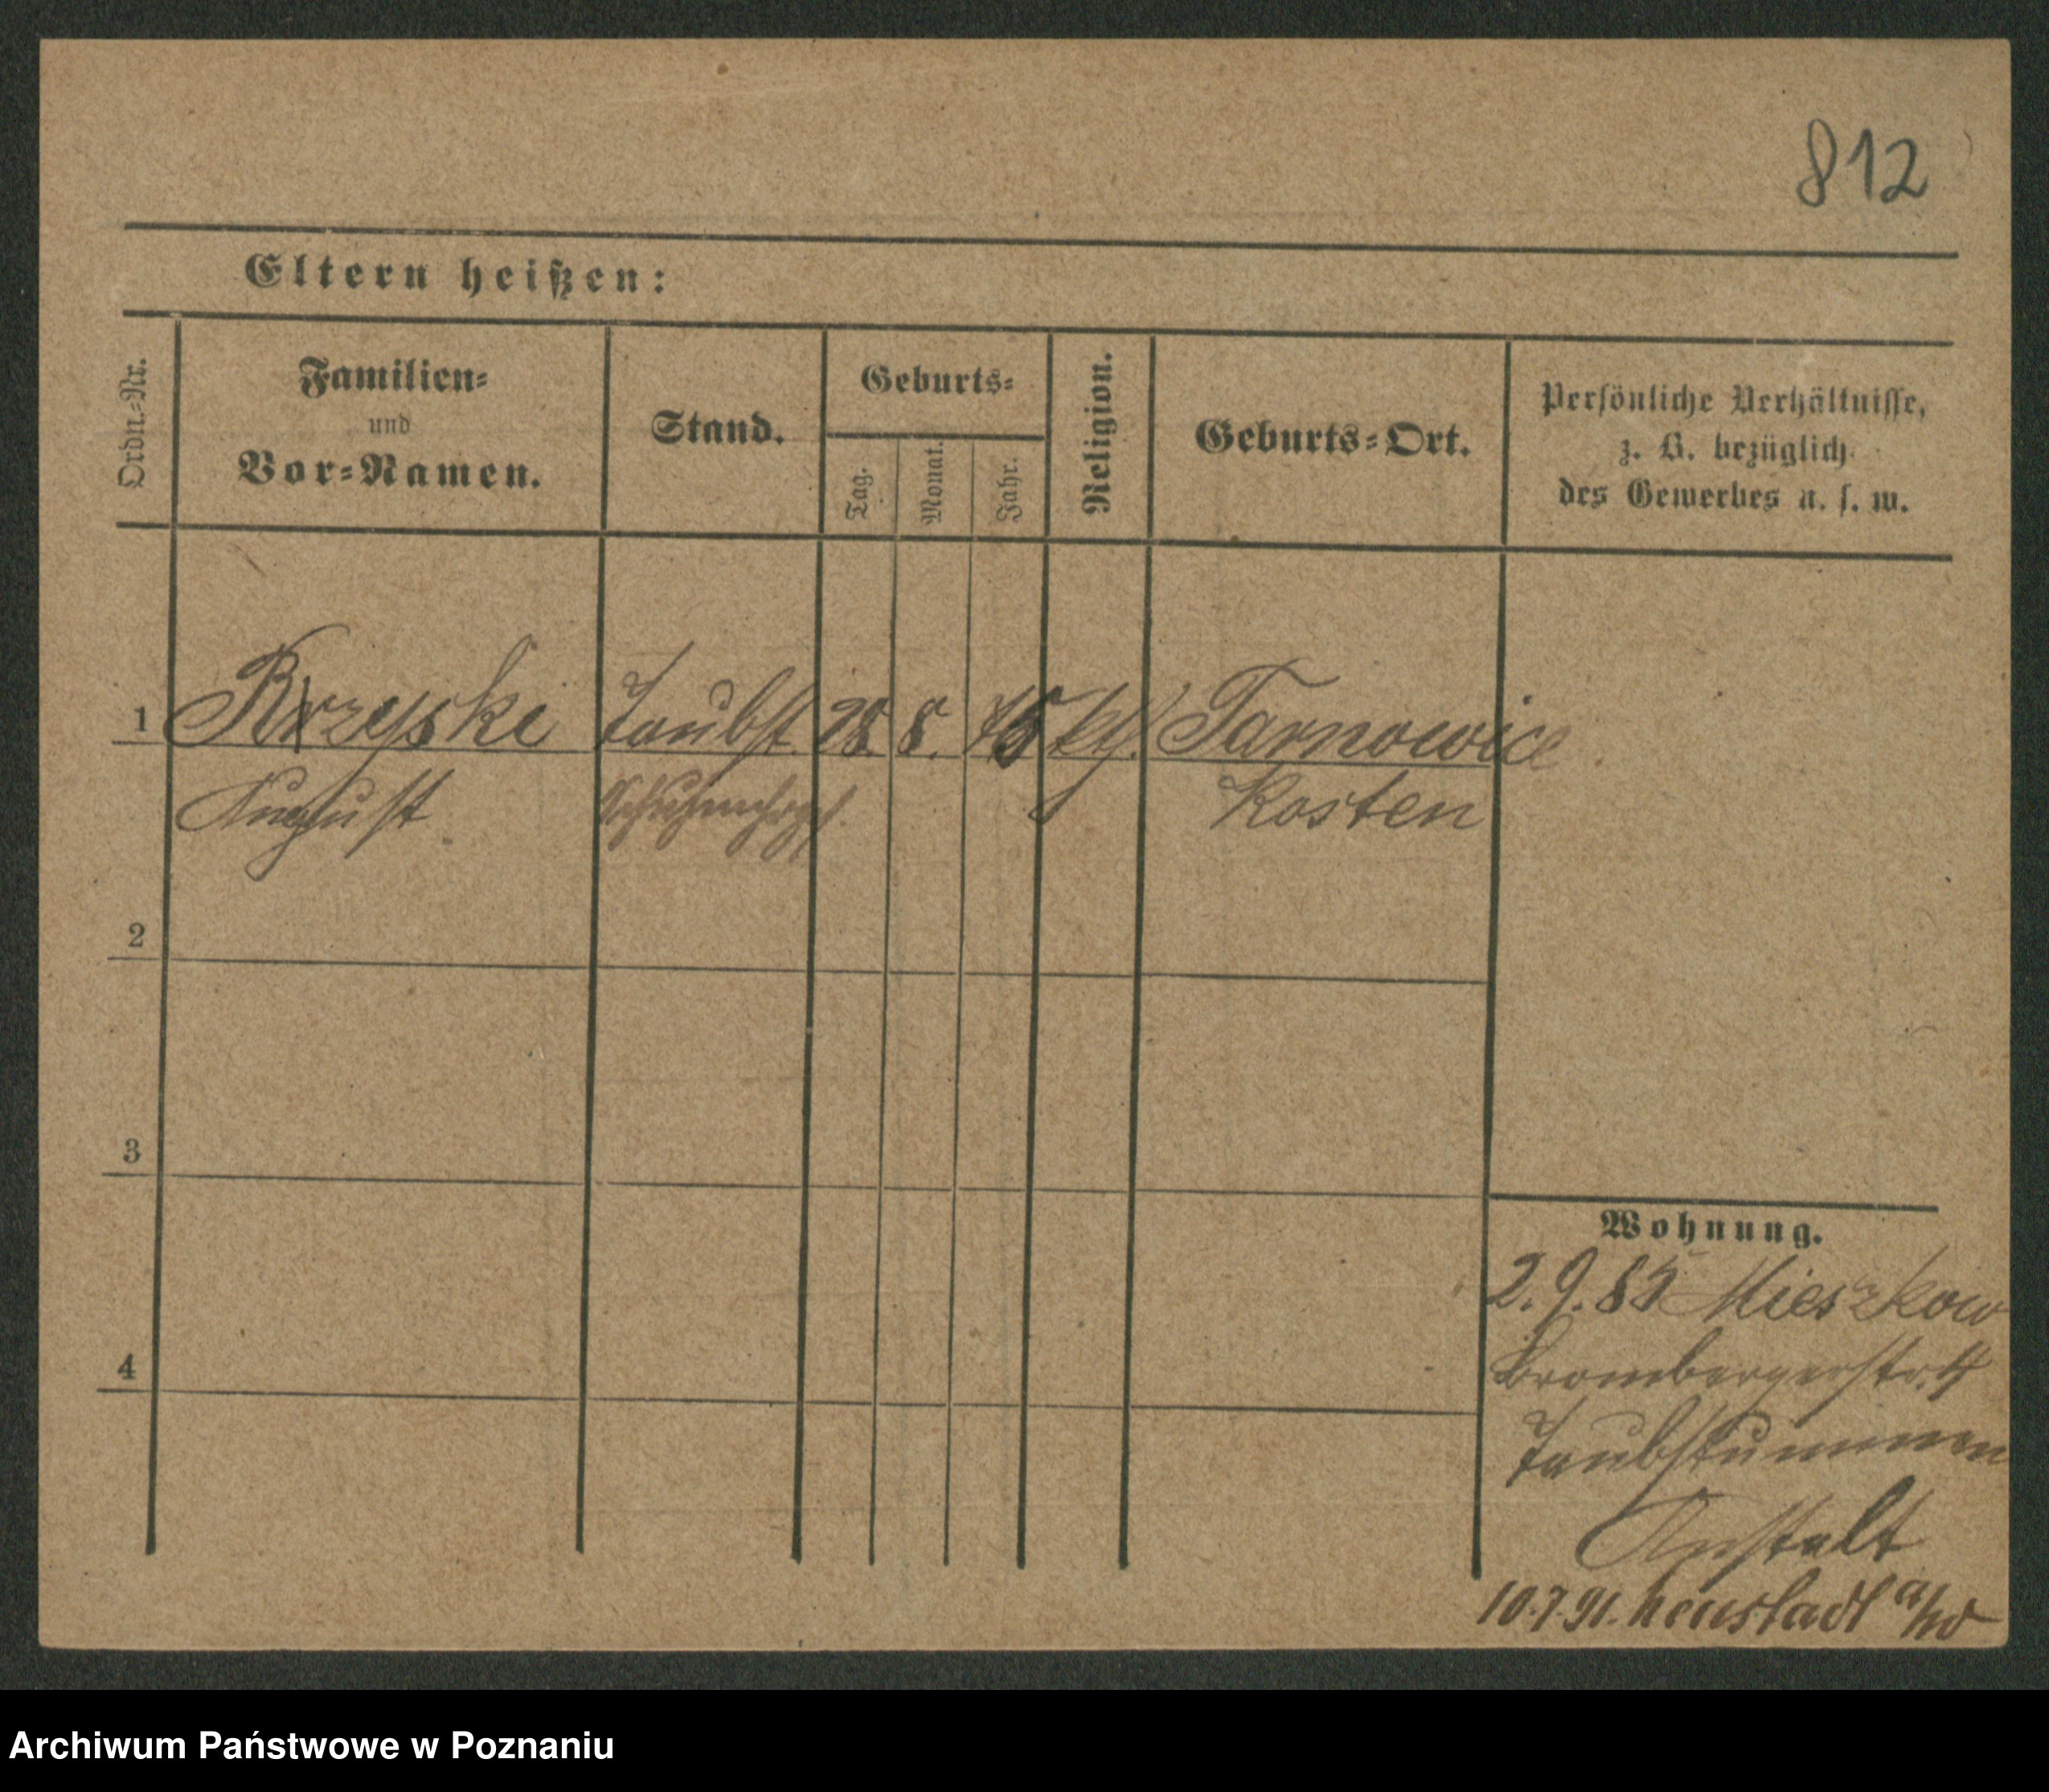 812
Eltern heißen:
Ordn.-Nr.
Familien-
und
Vor-Namen.
Stand.
Geburts-
Tag.
Monat.
Jahr.
Religion.
Geburts-Ort.
Persönliche Verhältnisse,
z. B. bezüglich
des Gewerbes u. s. w.
1 Krzyski Taubst. 28. 8. 75 kth. Tarnowice
August Kosten
2
3
4
Wohnung.
2.9.85 Mieszkow
Brombergerstr. 4
Taubstummen
Anstalt
10.7.91. Neustadt a/W
Archiwum Państwowe w Poznaniu